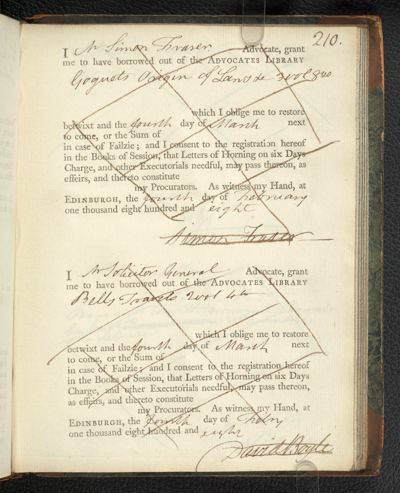 210.
I Mr Simon Fraser Advocate, grant
me to have borrowed out of the ADVOCATES LIBRARY
Goguets Origin of Laws &c 3 vol 8vo
which I oblige me to restore
betwixt and the fourth day of March next
to come, or the Sum of
in case of Failzie; and I consent to the registration hereof
in the Books of Session, that Letters of Horning on six Days
Charge, and other Executorials needful, may pass thereon, as
effeirs, and thereto constitute
my Procurators. As witness my Hand, at
EDINBURGH, the fourth day of February
one thousand eight hundred and eight
Simon Fraser
I Mr Solicitor General Advocate, grant
me to have borrowed out of the ADVOCATES LIBRARY
Bells Travels 2 vol 4to
which I oblige me to restore
betwixt and the fourth day of March next
to come, or the Sum of
in case of Failzie; and I consent to the registration hereof
in the Books of Session, that Letters of Horning on six Days
Charge, and other Executorials needful, may pass thereon,
as effeirs, and thereto constitute
my Procurators. As witness my Hand, at
EDINBURGH, the fourth day of Febry
one thousand eight hundred and eight
David Boyle